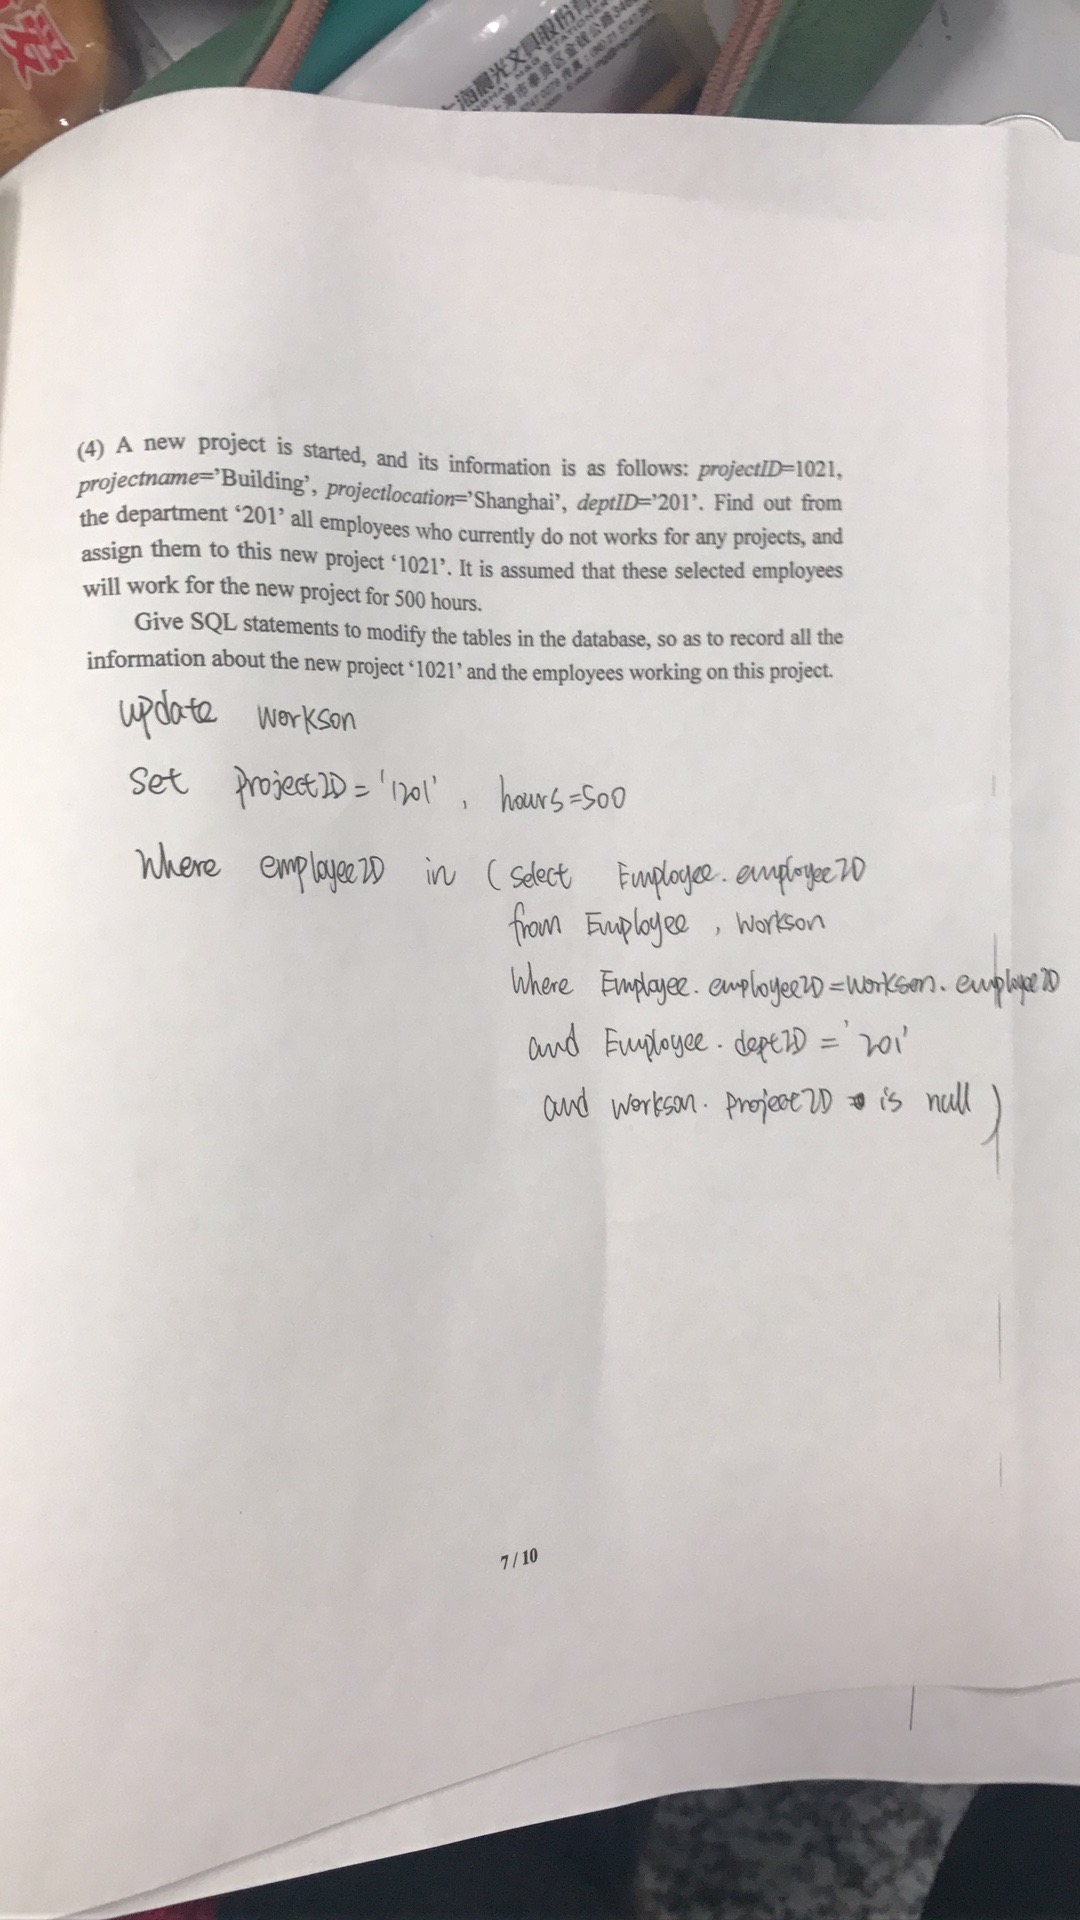 上海晨光文具股份有限
(4) A new project is started, and its information is as follows: projectID=1021,
projectname='Building', projectlocation='Shanghai', deptID='201'. Find out from
the department ‘201’ all employees who currently do not works for any projects, and
assign them to this new project ‘1021’. It is assumed that these selected employees
will work for the new project for 500 hours.
Give SQL statements to modify the tables in the database, so as to record all the
information about the new project ‘1021’ and the employees working on this project.
update workson
Set ProjectID = '1201' , hours=500
Where employeeID in ( select Employee. employeeID
from Employee , workson
Where Employee. employeeID = workson. employeeID
and Employee. deptID = '201'
and workson. ProjectID is null )
7 / 10